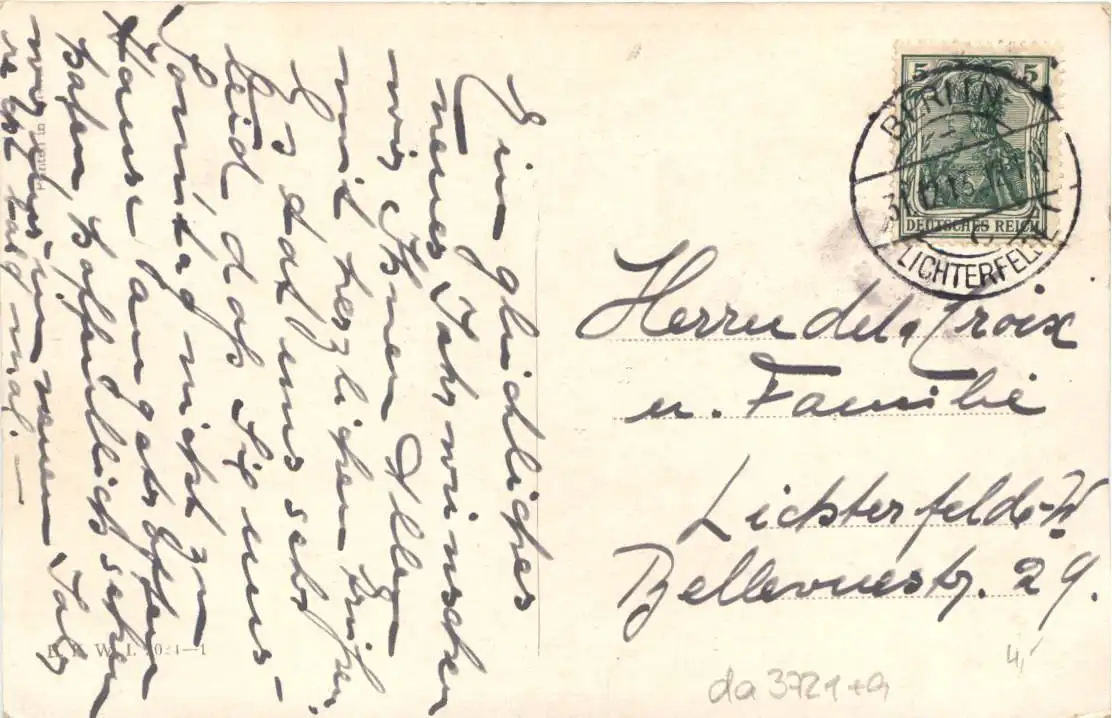 Ein glückliches
neues Jahr wünschen
wir Ihnen Allen
mit herzlichen Grüßen
Es tat uns sehr
leid, daß Sie uns
Sonntag nicht zu
Hause angetroffen
haben, hoffentlich sehen
wir uns im neuen Jahr
recht bald mal. —
5 5
DEUTSCHES REICH
BERLIN
31.12.15
LICHTERFELDE
Herrn de la Croix
u. Familie
Lichterfelde-W.
Bellevuestr. 29.
4,-
da 3721+a